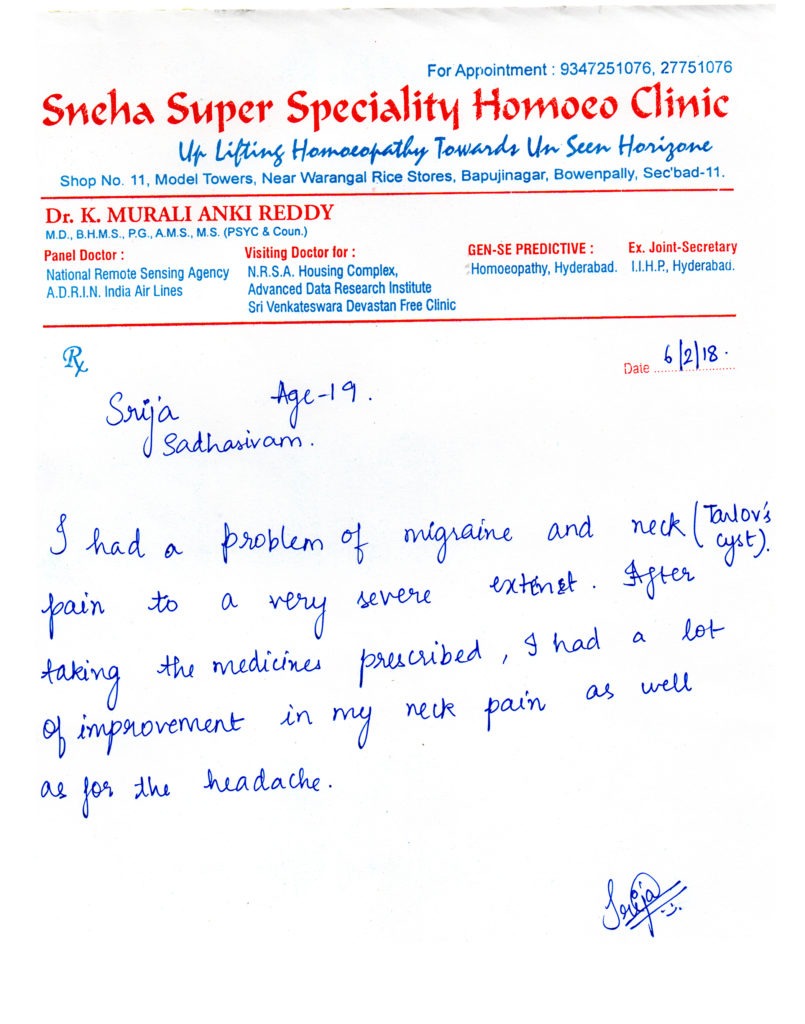 For Appointment : 9347251076, 27751076
Sneha Super Speciality Homoeo Clinic
Up Lifting Homoeopathy Towards Un Seen Horizone
Shop No. 11, Model Towers, Near Warangal Rice Stores, Bapujinagar, Bowenpally, Sec'bad-11.
Dr. K. MURALI ANKI REDDY
M.D., B.H.M.S., P.G., A.M.S., M.S. (PSYC & Coun.)
Panel Doctor :
National Remote Sensing Agency
A.D.R.I.N. India Air Lines
Visiting Doctor for :
N.R.S.A. Housing Complex,
Advanced Data Research Institute
Sri Venkateswara Devastan Free Clinic
GEN-SE PREDICTIVE :
Homoeopathy, Hyderabad.
Ex. Joint-Secretary
I.I.H.P., Hyderabad.
Rx
Date 6/2/18.
Srija Age-19.
Sadhasivam.
I had a problem of migraine and neck (Tarlov's cyst).
pain to a very severe extenst. After
taking the medicines prescribed, I had a lot
of improvement in my neck pain as well
as for the headache.
Srija